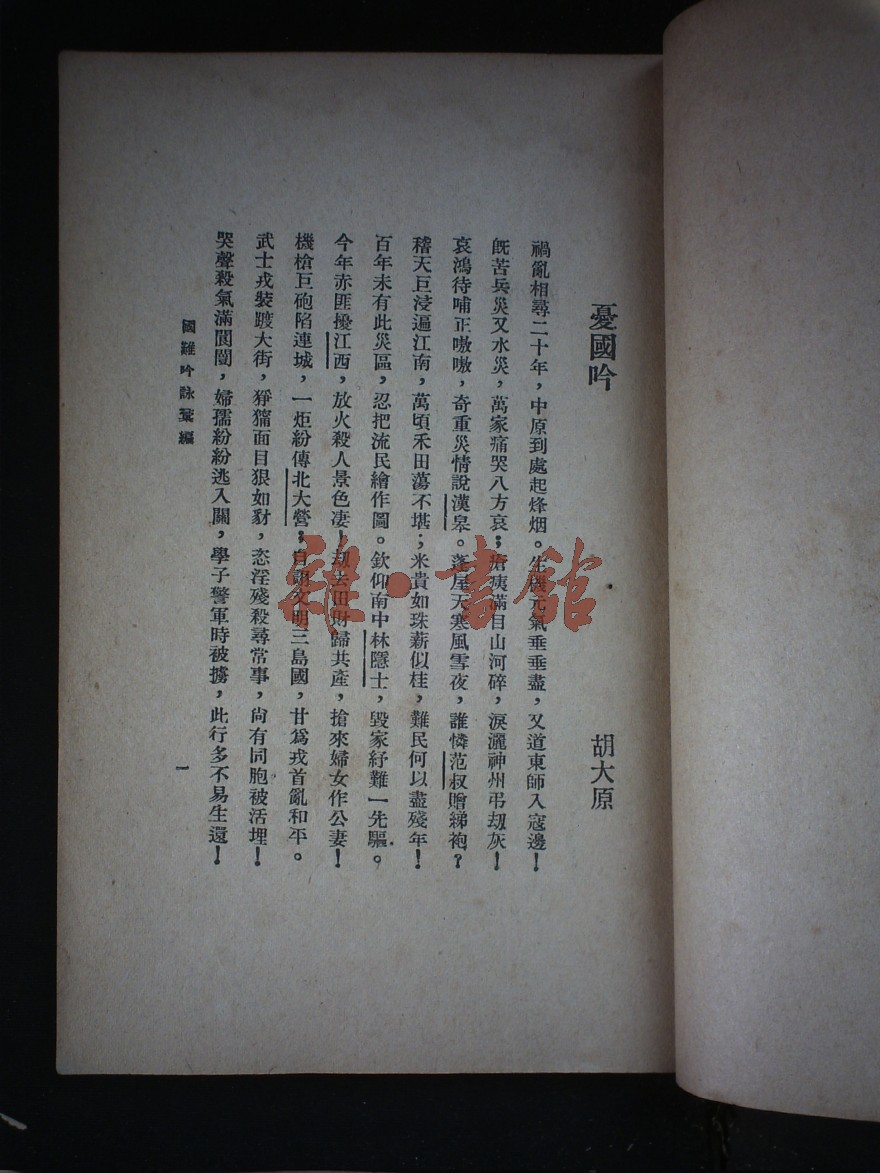 憂國吟
胡大原
禍亂相尋二十年，中原到處起烽烟。生機元氣垂垂盡，又道東師入寇邊！
既苦兵災又水災，萬家痛哭八方哀；瘡痍滿目山河碎，淚灑神州弔劫灰！
哀鴻待哺正嗷嗷，奇重災情說漢皋。蓬屋天寒風雪夜，誰憐范叔贈綈袍？
稽天巨浸遍江南，萬頃禾田蕩不堪；米貴如珠薪似桂，難民何以盡殘年！
百年未有此災區，忍把流民繪作圖。欽仰南中林隱士，毀家紓難一先驅。
今年赤匪擾江西，放火殺人景色凄！劫去田財歸共產，搶來婦女作公妻！
機槍巨砲陷連城，一炬紛傳北大營；自詡文明三島國，甘爲戎首亂和平。
武士戎裝踱大街，猙獰面目狠如豺，恣淫殘殺尋常事，尙有同胞被活埋！
哭聲殺氣滿閭闉，婦孺紛紛逃入關，學子警軍時被擄，此行多不易生還！
國難吟詠彙編
一
雜·書館